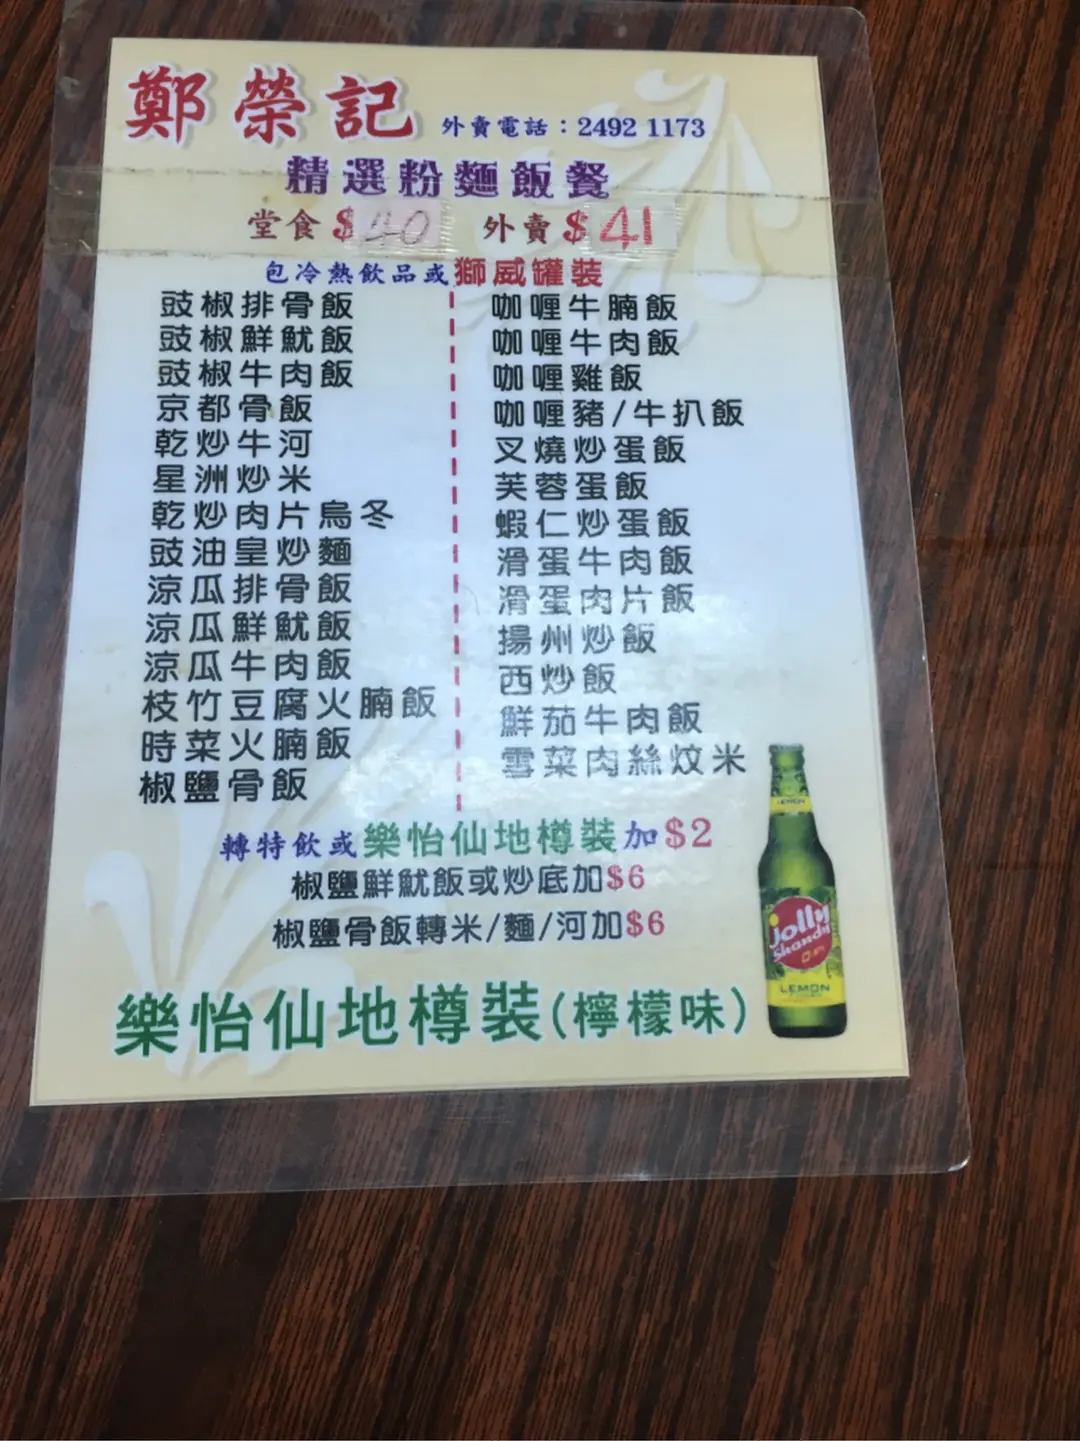 鄭榮記 外賣電話：2492 1173
精選粉麵飯餐
堂食$40 外賣$41
包冷熱飲品或獅威罐裝
豉椒排骨飯
豉椒鮮魷飯
豉椒牛肉飯
京都骨飯
乾炒牛河
星洲炒米
乾炒肉片烏冬
豉油皇炒麵
涼瓜排骨飯
涼瓜鮮魷飯
涼瓜牛肉飯
枝竹豆腐火腩飯
時菜火腩飯
椒鹽骨飯
咖喱牛腩飯
咖喱牛肉飯
咖喱雞飯
咖喱豬/牛扒飯
叉燒炒蛋飯
芙蓉蛋飯
蝦仁炒蛋飯
滑蛋牛肉飯
滑蛋肉片飯
揚州炒飯
西炒飯
鮮茄牛肉飯
雪菜肉絲炆米
轉特飲或樂怡仙地樽裝加$2
椒鹽鮮魷飯或炒底加$6
椒鹽骨飯轉米/麵/河加$6
樂怡仙地樽裝(檸檬味)
LEMON
Jolly
Shandy
LEMON